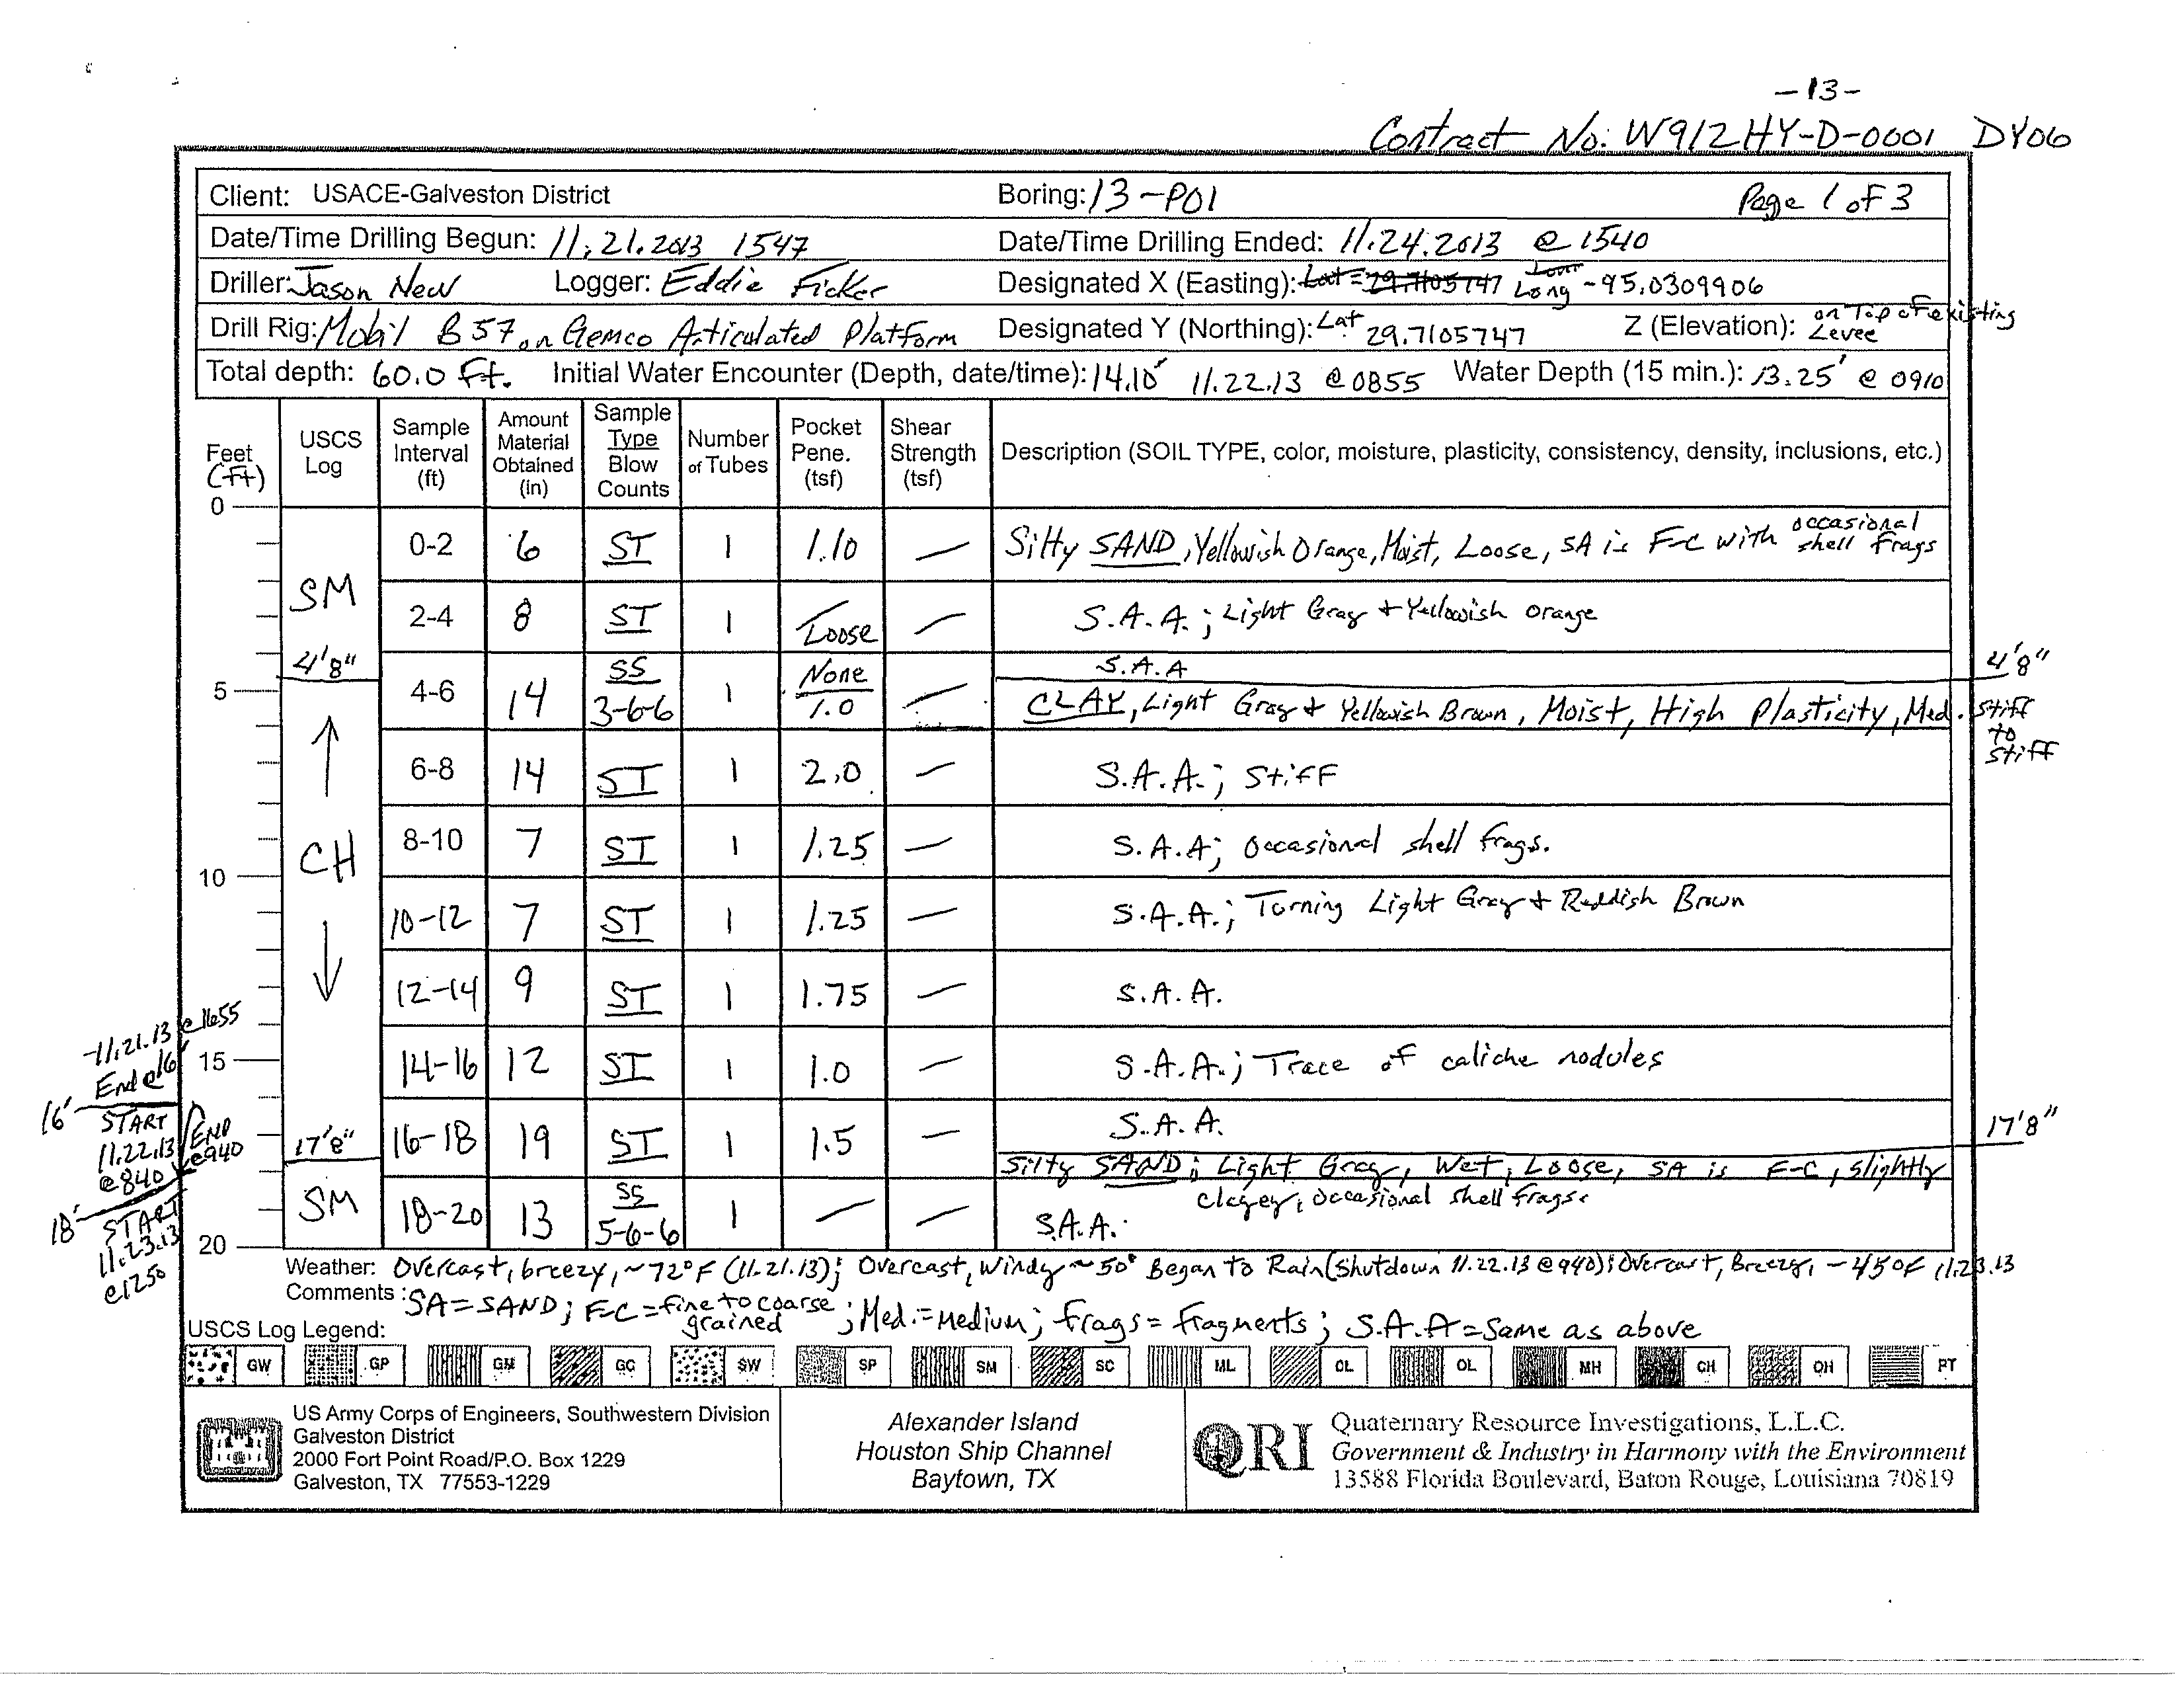 -13-
Contract No: W912HY-D-0001 DY06
Client: USACE-Galveston District Boring: 13-P01 Page 1 of 3
Date/Time Drilling Begun: 11.21.2013 1547 Date/Time Drilling Ended: 11.24.2013 @ 1540
Driller: Jason New Logger: Eddie Ficker Designated X (Easting): Lat = 29.7105747 Long -95.0309906
Drill Rig: Mobil B57 on Gemco Articulated Platform Designated Y (Northing): Lat 29.7105747 Z (Elevation): on Top of existing Levee
Total depth: 60.0 ft. Initial Water Encounter (Depth, date/time): 14.10' 11.22.13 @ 0855 Water Depth (15 min.): 13.25' @ 0910
Feet (ft) USCS Log Sample Interval (ft) Amount Material Obtained (in) Sample Type Blow Counts Number of Tubes Pocket Pene. (tsf) Shear Strength (tsf) Description (SOIL TYPE, color, moisture, plasticity, consistency, density, inclusions, etc.)
0
0-2 6 ST 1 1.10 — Silty SAND, Yellowish Orange, Moist, Loose, SA is F-C with occasional shell frags
SM
2-4 8 ST 1 Loose — S.A.A.; Light Gray + Yellowish orange
4'8" SS None S.A.A 4'8"
5 4-6 14 3-6-6 1 1.0 — CLAY, Light Gray + Yellowish Brown, Moist, High Plasticity, Med. Stiff to stiff
6-8 14 ST 1 2.0 — S.A.A.; Stiff
CH 8-10 7 ST 1 1.25 — S.A.A; Occasional shell frags.
10
10-12 7 ST 1 1.25 — S.A.A.; Turning Light Gray + Reddish Brown
12-14 9 ST 1 1.75 — S.A.A.
-11.21.13 @ 1655
End @ 16'
15 14-16 12 ST 1 1.0 — S.A.A.; Trace of caliche nodules
16'
START 11.22.13 @ 840 END @940
17'8" 16-18 19 ST 1 1.5 — S.A.A. 17'8"
Silty SAND; Light Gray, Wet, Loose, SA is F-C, slightly
clayey, occasional shell frags.
18' START 11.23.13 @1250
SM 18-20 13 SS 5-6-6 1 — — S.A.A.
20
Weather: Overcast, breezy, ~72°F (11.21.13); Overcast, Windy ~50° Began to Rain (Shutdown 11.22.13 @ 940); Overcast, Breezy, ~45°F 11.23.13
Comments: SA = SAND; F-C = fine to coarse grained; Med. = Medium; frags = fragments; S.A.A = Same as above
USCS Log Legend:
GW GP GM GC SW SP SM SC ML CL OL MH CH OH PT
US Army Corps of Engineers, Southwestern Division
Galveston District
2000 Fort Point Road/P.O. Box 1229
Galveston, TX 77553-1229
Alexander Island
Houston Ship Channel
Baytown, TX
QRI
Quaternary Resource Investigations, L.L.C.
Government & Industry in Harmony with the Environment
13588 Florida Boulevard, Baton Rouge, Louisiana 70819